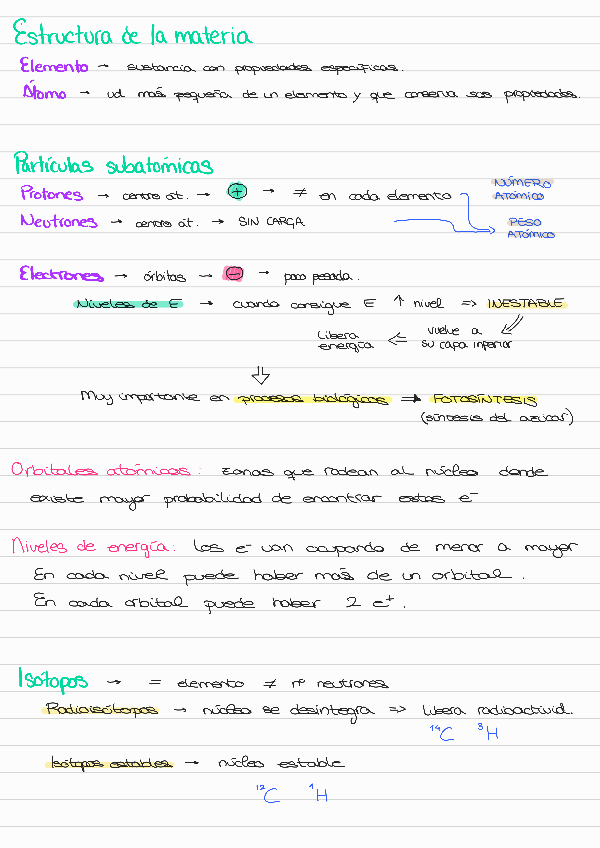 Estructura de la materia
Elemento → sustancia con propiedades específicas.
Átomo → ud más pequeña de un elemento y que conserva sus propiedades.
Partículas subatómicas
Protones → centro át. → + → ≠ en cada elemento
NÚMERO
ATÓMICO
Neutrones → centro át. → SIN CARGA
PESO
ATÓMICO
Electrones → órbitas → - → poco pesada.
Niveles de E → cuando consigue E ↑ nivel => INESTABLE
vuelve a
su capa inferior
Libera
energía
Muy importante en procesos biológicos → FOTOSÍNTESIS
(síntesis del azúcar)
Orbitales atómicos: zonas que rodean al núcleo donde
existe mayor probabilidad de encontrar estos e⁻
Niveles de energía: Los e⁻ van ocupando de menor a mayor
En cada nivel puede haber más de un orbital.
En cada orbital puede haber 2 e⁺.
Isótopos → = elemento ≠ nº neutrones
Radioisótopos → núcleo se desintegra => libera radioactivid.
¹⁴C ³H
Isótopos estables → núcleo estable
¹²C ¹H